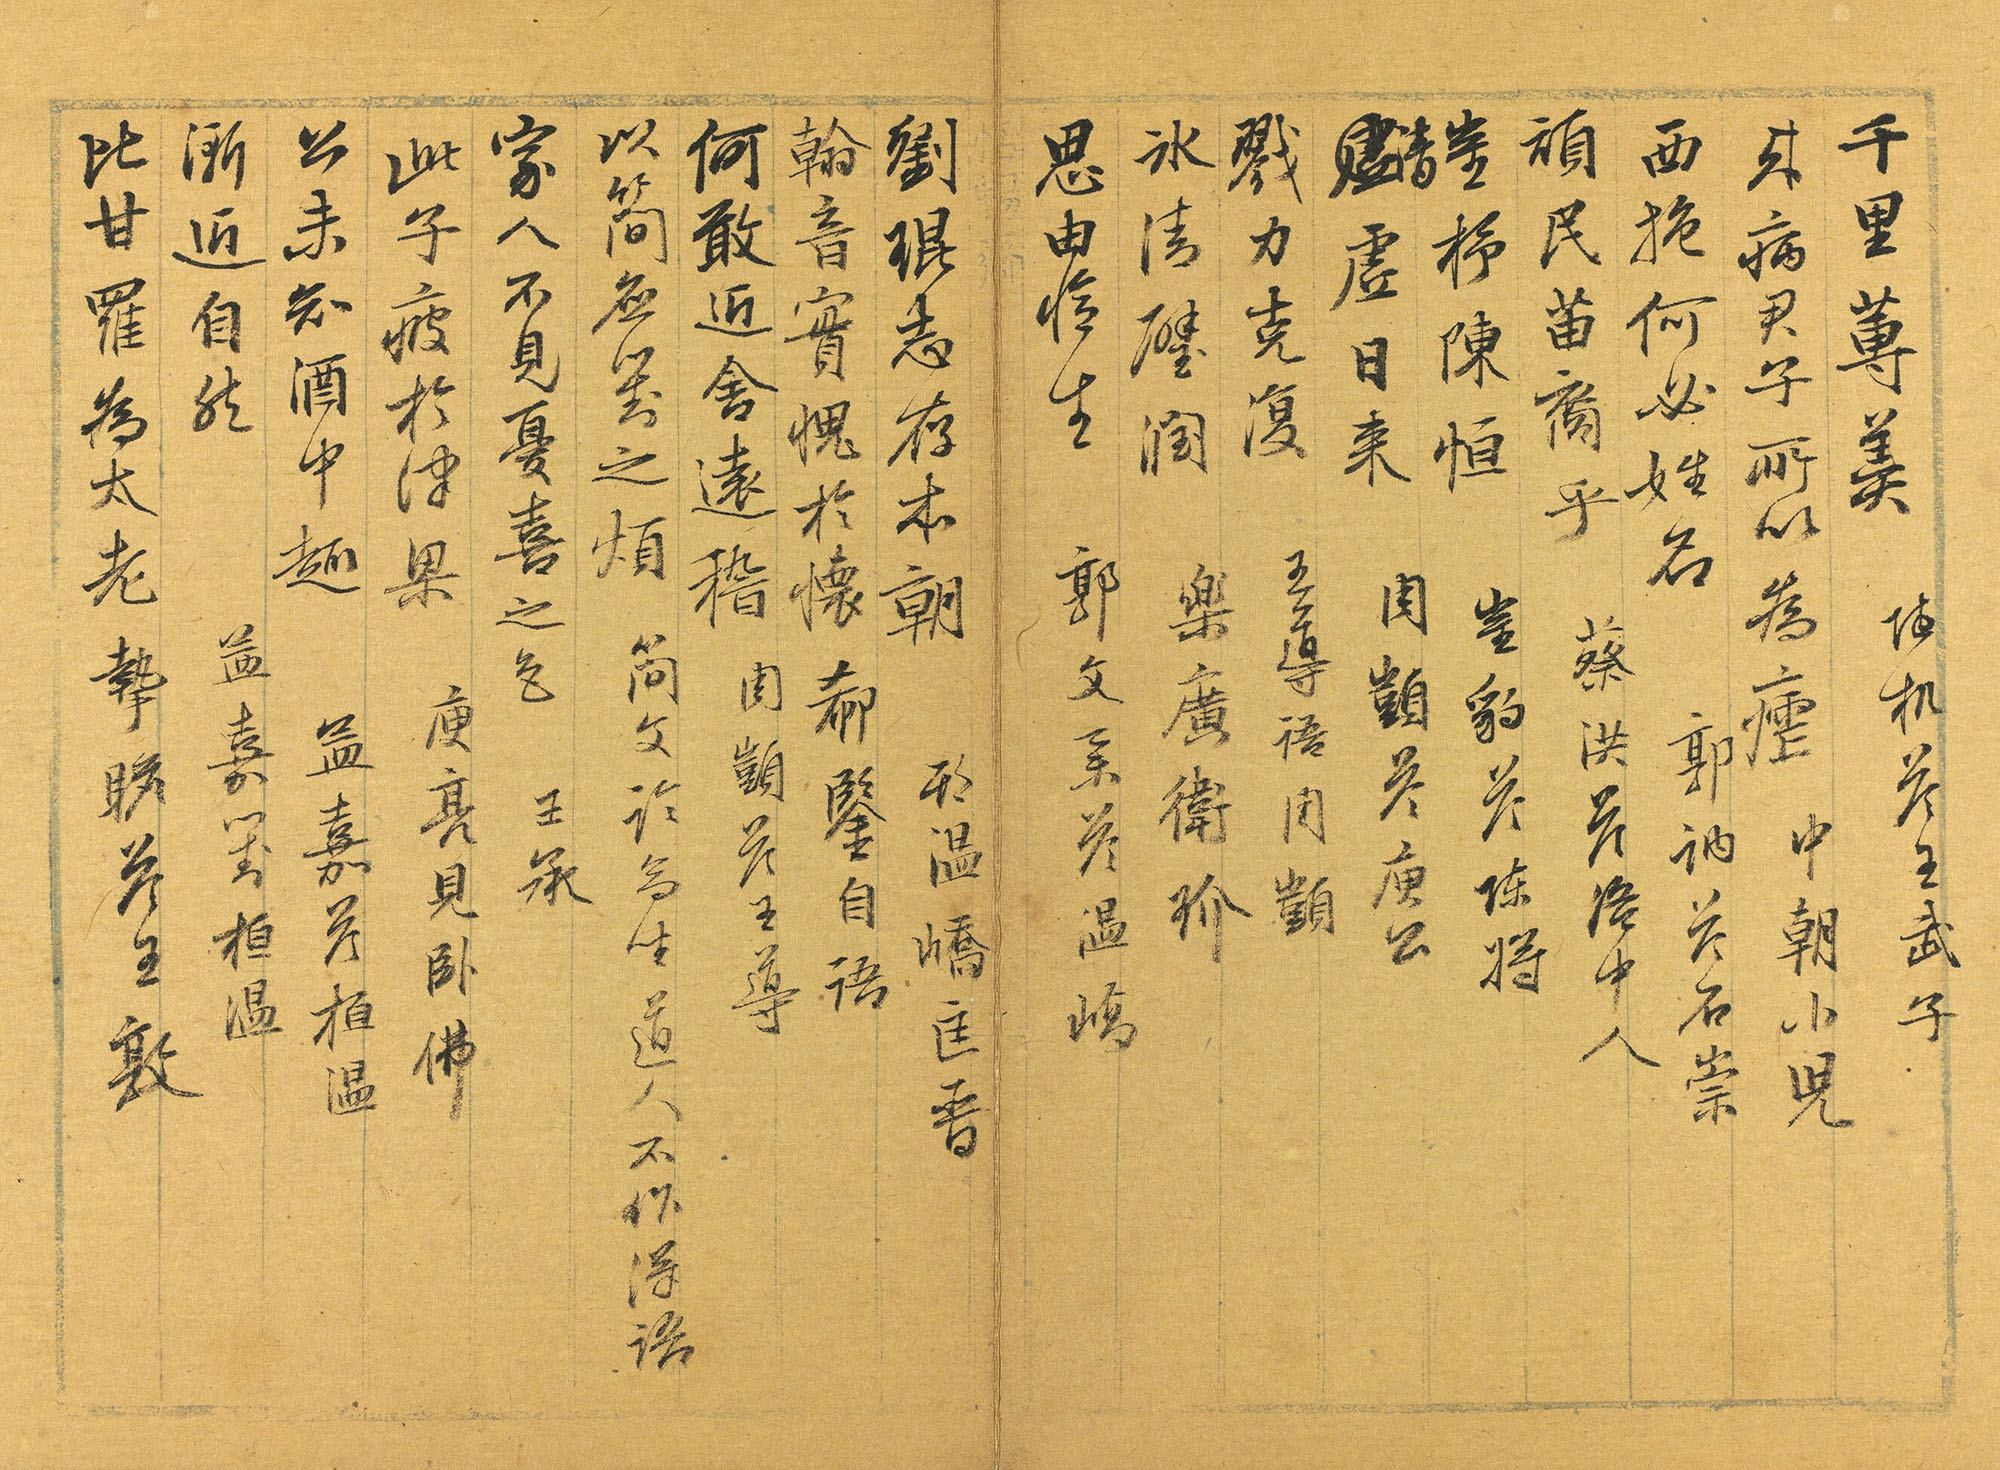 千里蓴羹 陆机答王武子
来病君子所以為瘧 中朝小児
西施何必姓名 郭訥答石崇
頑民苗裔乎 蔡洪答洛中人
杼陳恒 豹答陈
清虚日来 周顗答庾公
戮力克復 王導語周顗
氷清璧潤 樂廣衛玠
思由憶生 郭文系答温嶠
劉琨志存本朝 温嶠匡晋
翰音實愧於懐 郗鑒自語
何敢近舍遠稽 周顗答王導
以簡應對之煩 简文 高坐道人不作漢語
家人不見憂喜之色 王承
此子疲於津梁 庾亮見卧佛
公未知酒中趣 孟嘉答桓温
漸近自然 孟嘉對桓温
比甘羅為太老 摯瞻答王敦